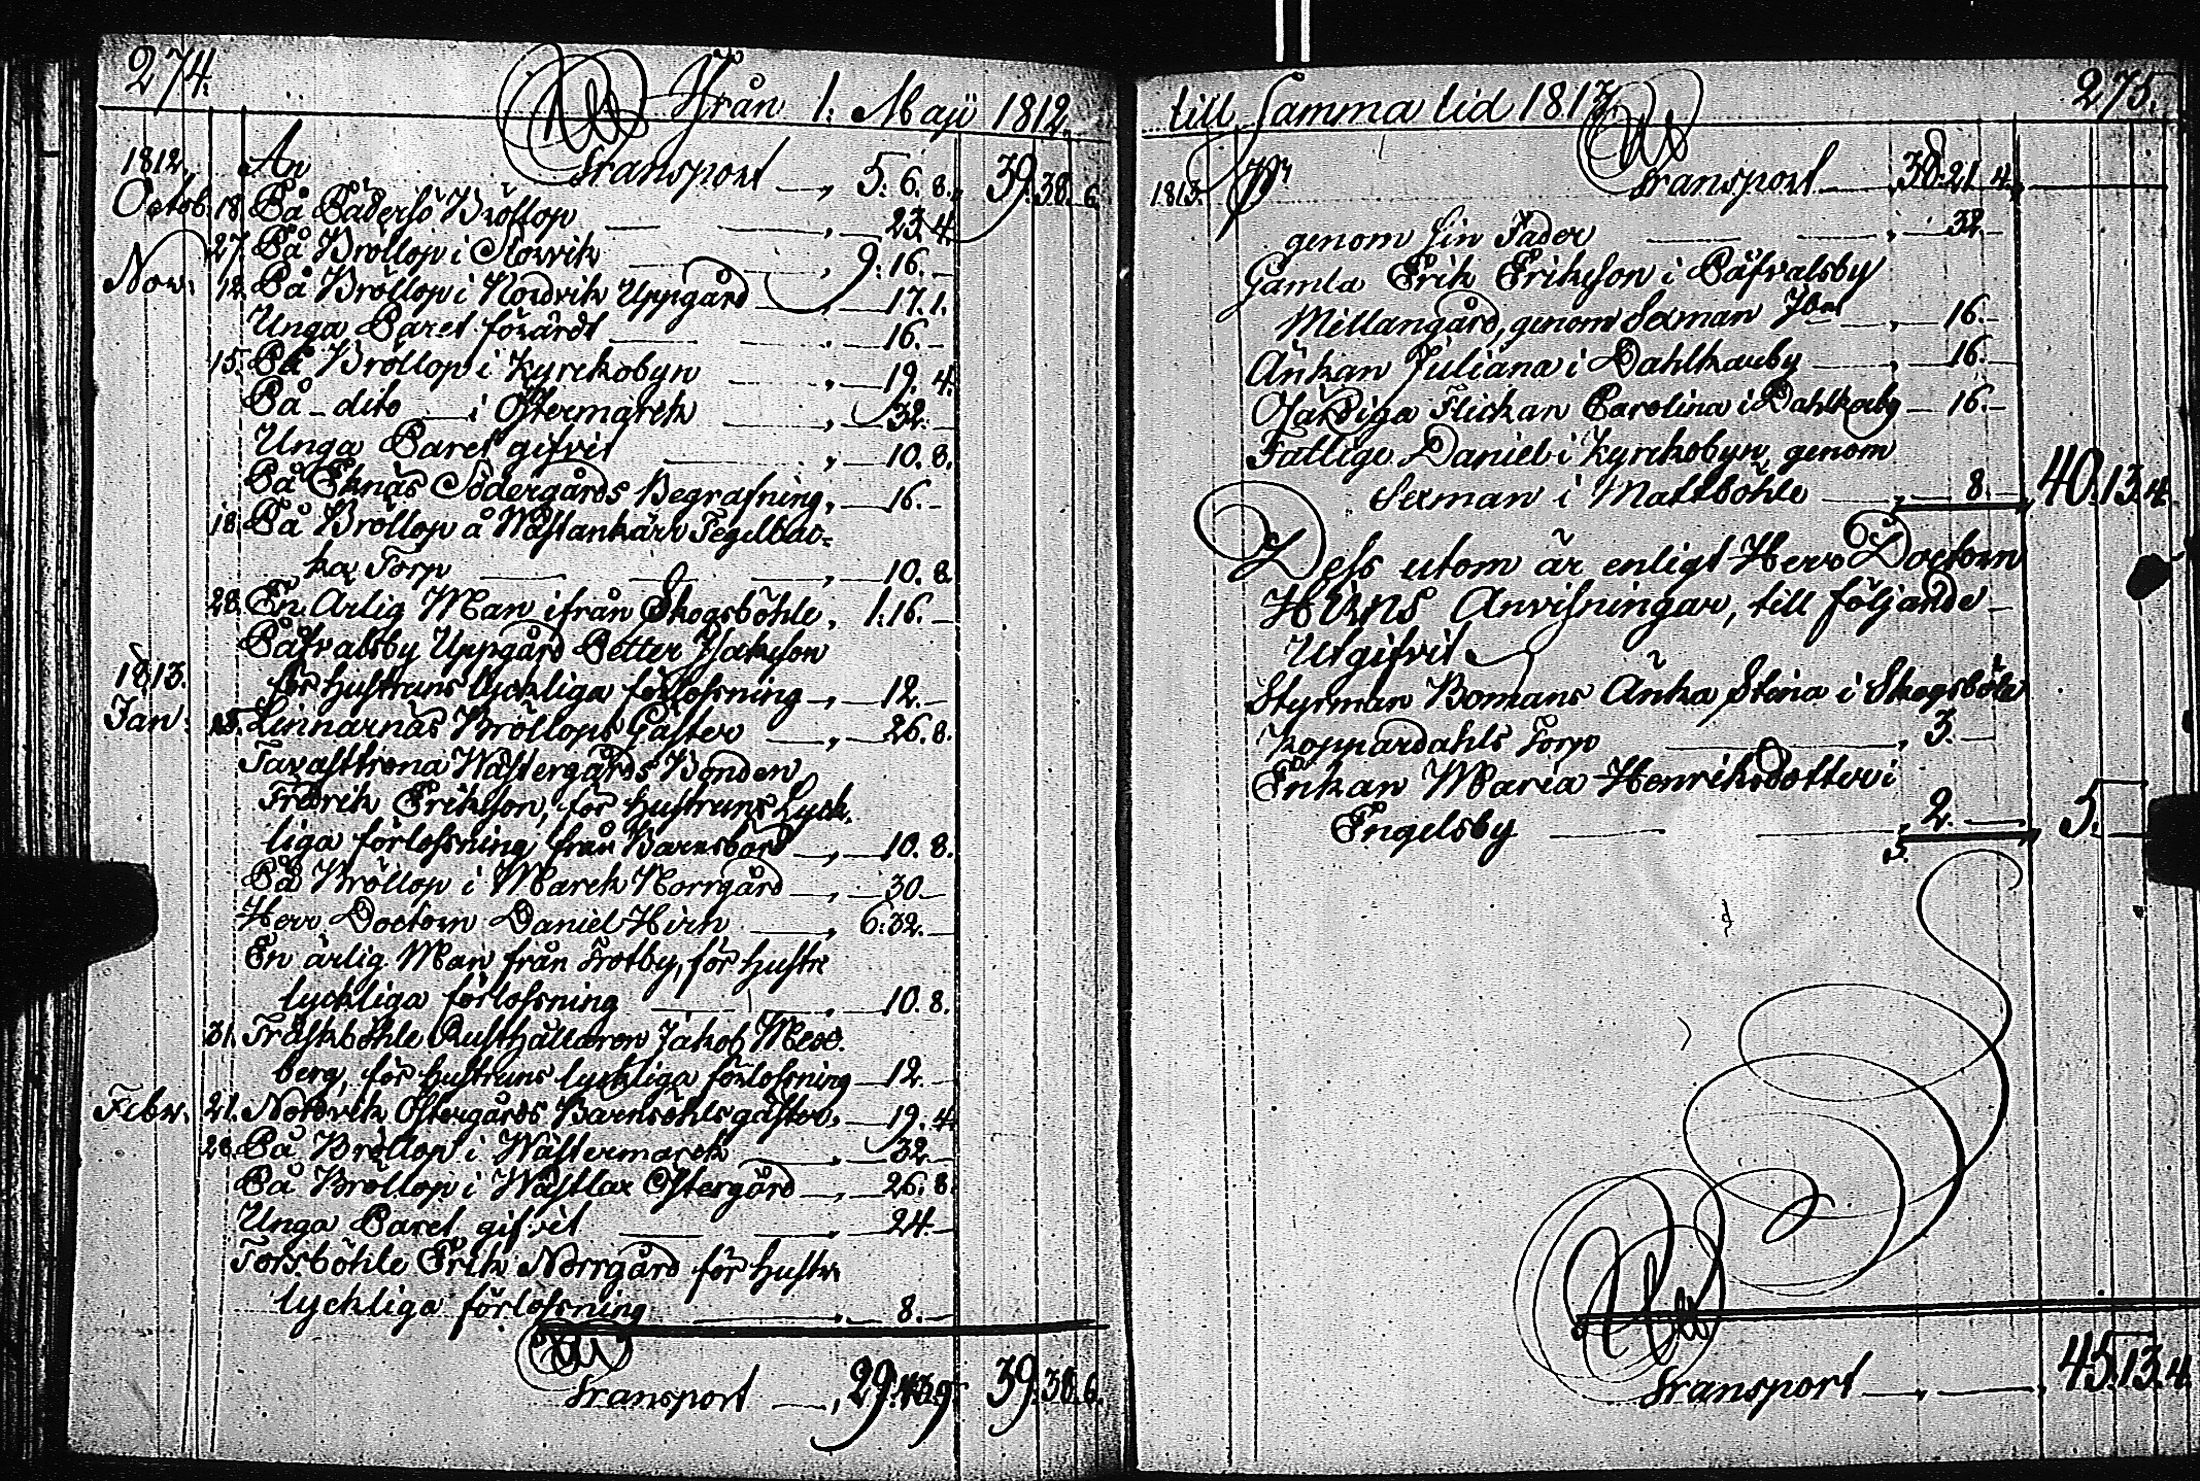 274.
Rd Från 1: Maji 1812
1812. An Transport 5. 6. 8. 39. 38. 6.
Octob. 18. På Pädersö Bröllop 23. 4.
27. På Bröllop i Storvik 9. 16.
Nov: 12. På Bröllop i Nordvik Uppgård 17. 1.
Unga Paret förärdt 16.
15. På Bröllop i Kyrckobyn 19. 4.
På dito i Östermarck 32.
Unga Paret gifvit 10. 8.
På Eknäs Södergårds Begrafning, 16.
18. På Bröllop å Wästankärr Tegelbac=
ka Torp 10. 8.
28. En Ärlig Man ifrån Skogsböhle, 1: 16.
Påfvalsby Uppgård Petter Jsakson
1813. för hustruns lyckliga förlossning 12.
Jan: 15. Linnarnäs Bröllops Gäster 26. 8.
Tavastkena Wästergårds Bonden
Fredrik Erikson, för hustruns Lyck
liga förlossning från Barnsbörd 10. 8.
På Bröllop i Marck Norrgård 30
Herr Doctorn Daniel Hirn 6: 32.
En ärlig Man från Trotby, för hustr
lyckliga förlossning 10. 8.
31. Träskböhle Rusthållaren Jakob
berg, för hustruns lyckliga förlossning 12.
Febr. 21. Nordvik Östergårds Barnsöhlsgäster, 19. 4.
28. På Bröllop i Wästermarck 32.
På Bröllop i Wästlax Östergård 26. 8.
Unga Paret gifvit 24.
Torsböhle Erik Norrgård för hustr:
lyckliga förlossning 8.
Rd
Transport 29. 39. 38. 6.
till Samma tid 1813. 275.
Rd
1813. Pr Transport 38. 21. 4.
genom sin Fader 32.
Gamla Erik Erikson i Påfvalsby
Mellangård, genom Sexman 16.
Änkan Juliana i Dahlkarby 16.
Ofärdiga Flickan Carolina i Dahlkarby 16.
Fattige Daniel i Kyrckobyn, genom
Sexman i Mattböhle 8. 40. 13. 4.
Dess utom är enligt Herr Doctorn
Hirns Anvisningar, till följande
Utgifvit
Styrman Bomans Änka Stina i Skogsböle
Koppardahls Torp 3.
Enkan Maria Henriksdotter i
Engelsby 2. 5.
5.
Rd
Transport 45. 13. 4.